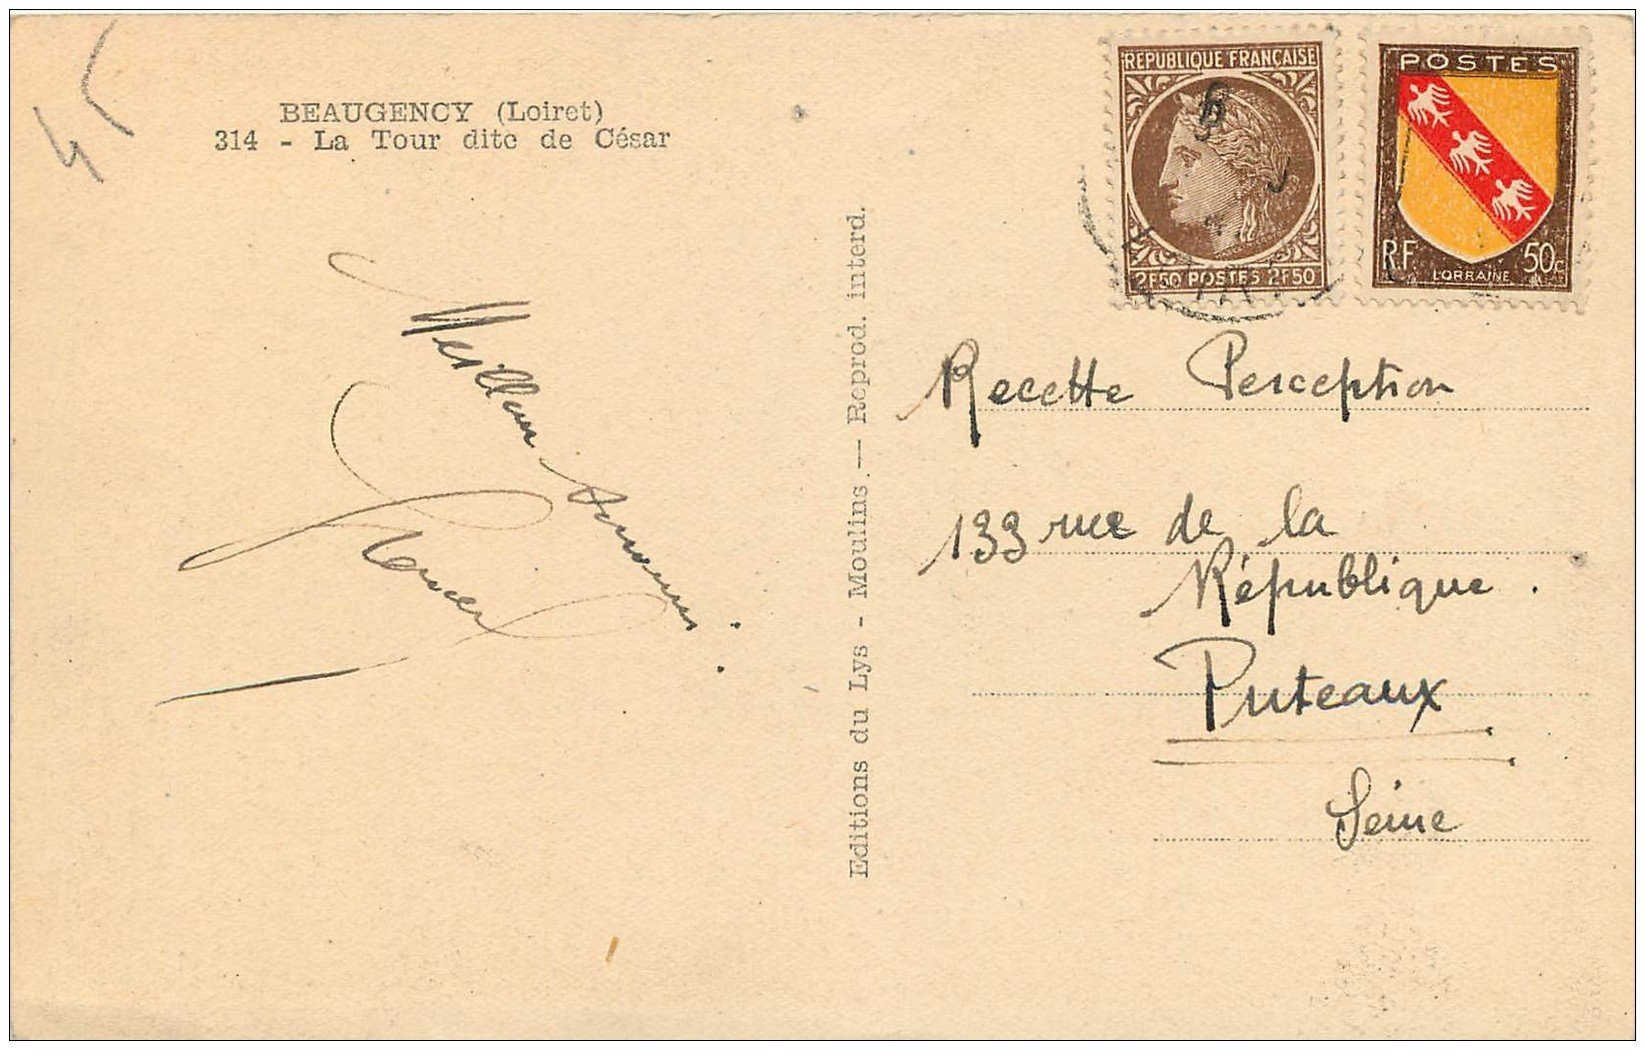 45
BEAUGENCY (Loiret)
314 - La Tour dite de César
Meilleurs souvenirs.
Editions du Lys - Moulins. — Reprod. interd.
REPUBLIQUE FRANÇAISE
2F50 POSTES 2F50
POSTES
RF 50c
LORRAINE
Recette Perception
133 rue de la
République.
Puteaux
Seine